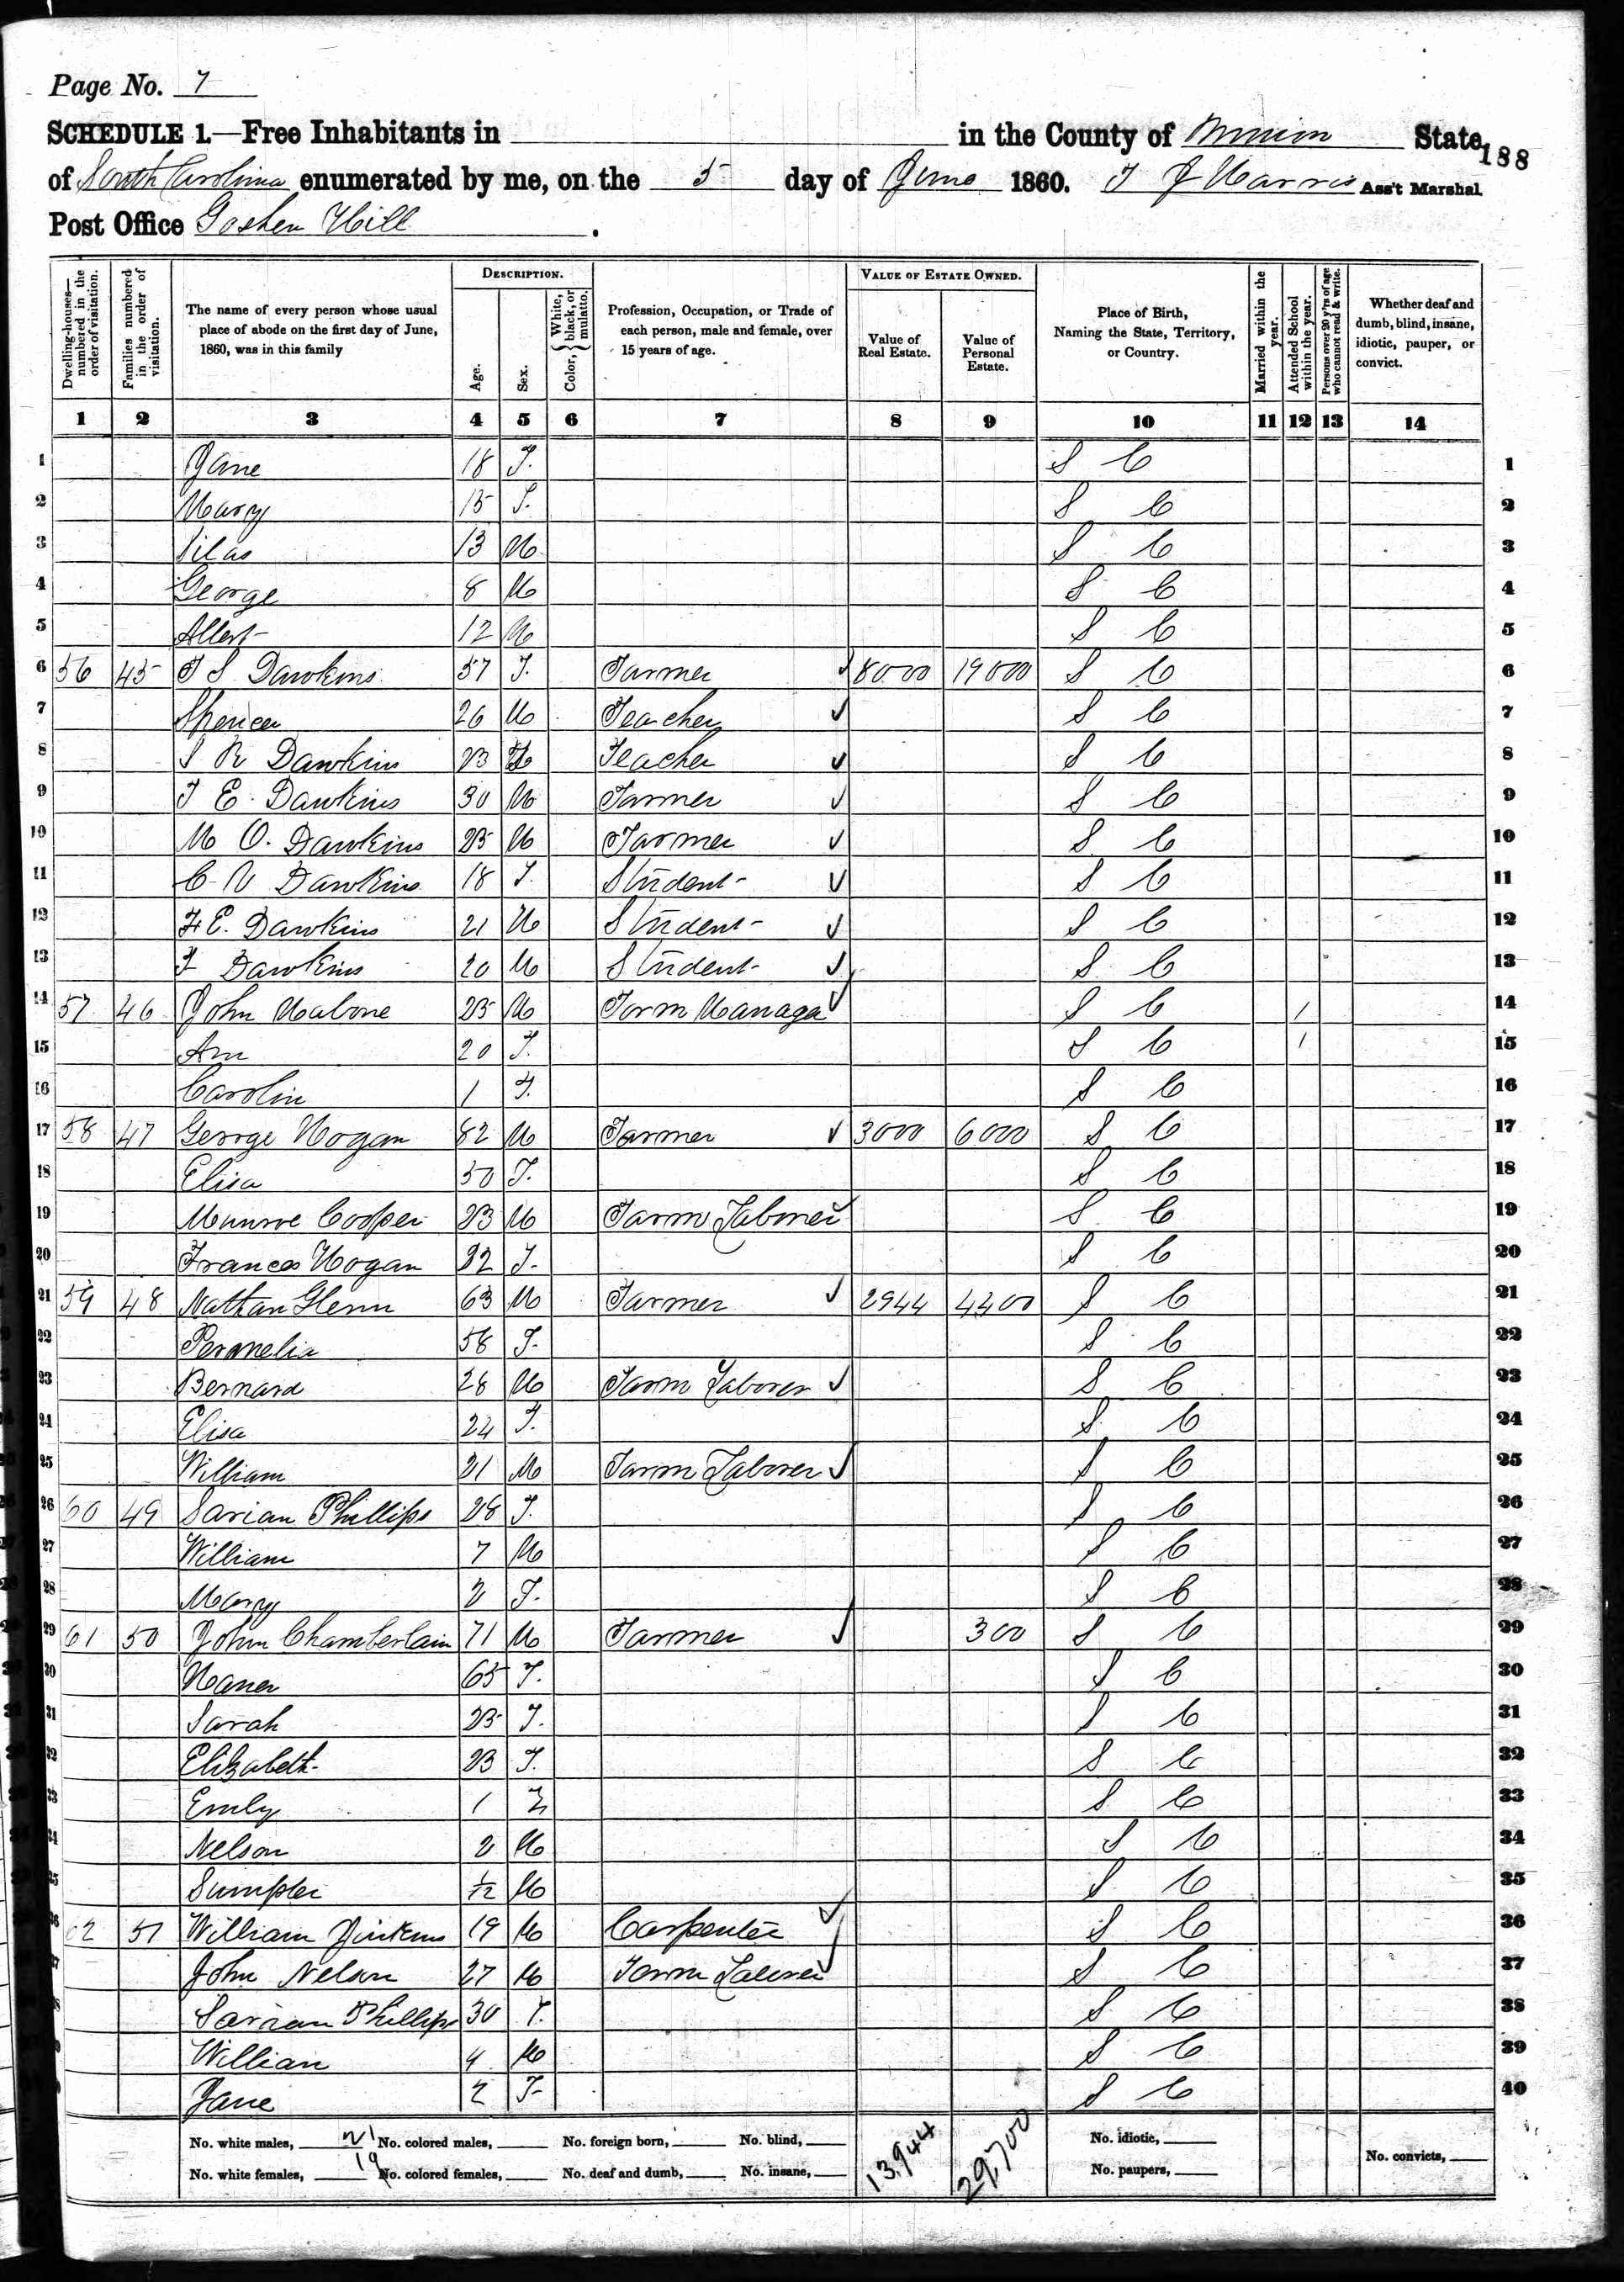 Page No. 7
SCHEDULE 1.—Free Inhabitants in in the County of Union State
188
of South Carolina enumerated by me, on the 5 day of June 1860. T J Harris Ass't Marshal
Post Office Goshen Hill.
Dwelling-houses—numbered in the order of visitation.
Families numbered in the order of visitation.
The name of every person whose usual place of abode on the first day of June, 1860, was in this family
DESCRIPTION.
Age.
Sex.
Color, { White, black, or mulatto.
Profession, Occupation, or Trade of each person, male and female, over 15 years of age.
VALUE OF ESTATE OWNED.
Value of Real Estate.
Value of Personal Estate.
Place of Birth, Naming the State, Territory, or Country.
Married within the year.
Attended School within the year.
Persons over 20 y'rs of age who cannot read & write.
Whether deaf and dumb, blind, insane, idiotic, pauper, or convict.
1 2 3 4 5 6 7 8 9 10 11 12 13 14
1 Jane 18 F. S C 1
2 Mary 15 F. S C 2
3 Silas 13 M S C 3
4 George 8 M S C 4
5 Albert 12 M S C 5
6 56 45 T S Dawkins 57 F. Farmer 8000 19000 S C 6
7 Spencer 26 M Teacher S C 7
8 S R Dawkins 23 Teacher S C 8
9 T E. Dawkins 30 M Farmer S C 9
10 M O. Dawkins 25 M Farmer S C 10
11 C V Dawkins 18 F. Student S C 11
12 F E. Dawkins 21 M Student S C 12
13 T Dawkins 20 M Student S C 13
14 57 46 John Malone 25 M Farm Manager S C 1 14
15 Ann 20 F. S C 1 15
16 Carolin 1 F. S C 16
17 58 47 George Hogan 82 M Farmer 3000 6000 S C 17
18 Elisa 50 F. S C 18
19 Munroe Cooper 23 M Farm Laborer S C 19
20 Frances Hogan 32 F. S C 20
21 59 48 Nathan Glenn 63 M Farmer 2944 4400 S C 21
22 Permelia 58 F. S C 22
23 Bernard 28 M Farm Laborer S C 23
24 Elisa 24 F. S C 24
25 William 21 M Farm Laborer S C 25
26 60 49 Sarian Phillips 28 F. S C 26
27 William 7 M S C 27
28 Mary 2 F. S C 28
29 61 50 John Chamberlain 71 M Farmer 300 S C 29
30 Naner 65 F. S C 30
31 Sarah 25 F. S C 31
32 Elizabeth 23 F. S C 32
33 Emily 1 F S C 33
34 Nelson 2 M S C 34
35 Sumpter 1/12 M S C 35
36 62 51 William 19 M Carpenter S C 36
37 John Nelson 27 M Farm Laborer S C 37
38 Sarian Phillips 30 F. S C 38
39 Willian 4 M S C 39
40 Jane 2 F S C 40
No. white males, 21 No. colored males, No. foreign born, No. blind, 13,944 29,700 No. idiotic, No. convicts,
No. white females, 19 No. colored females, No. deaf and dumb, No. insane, No. paupers,